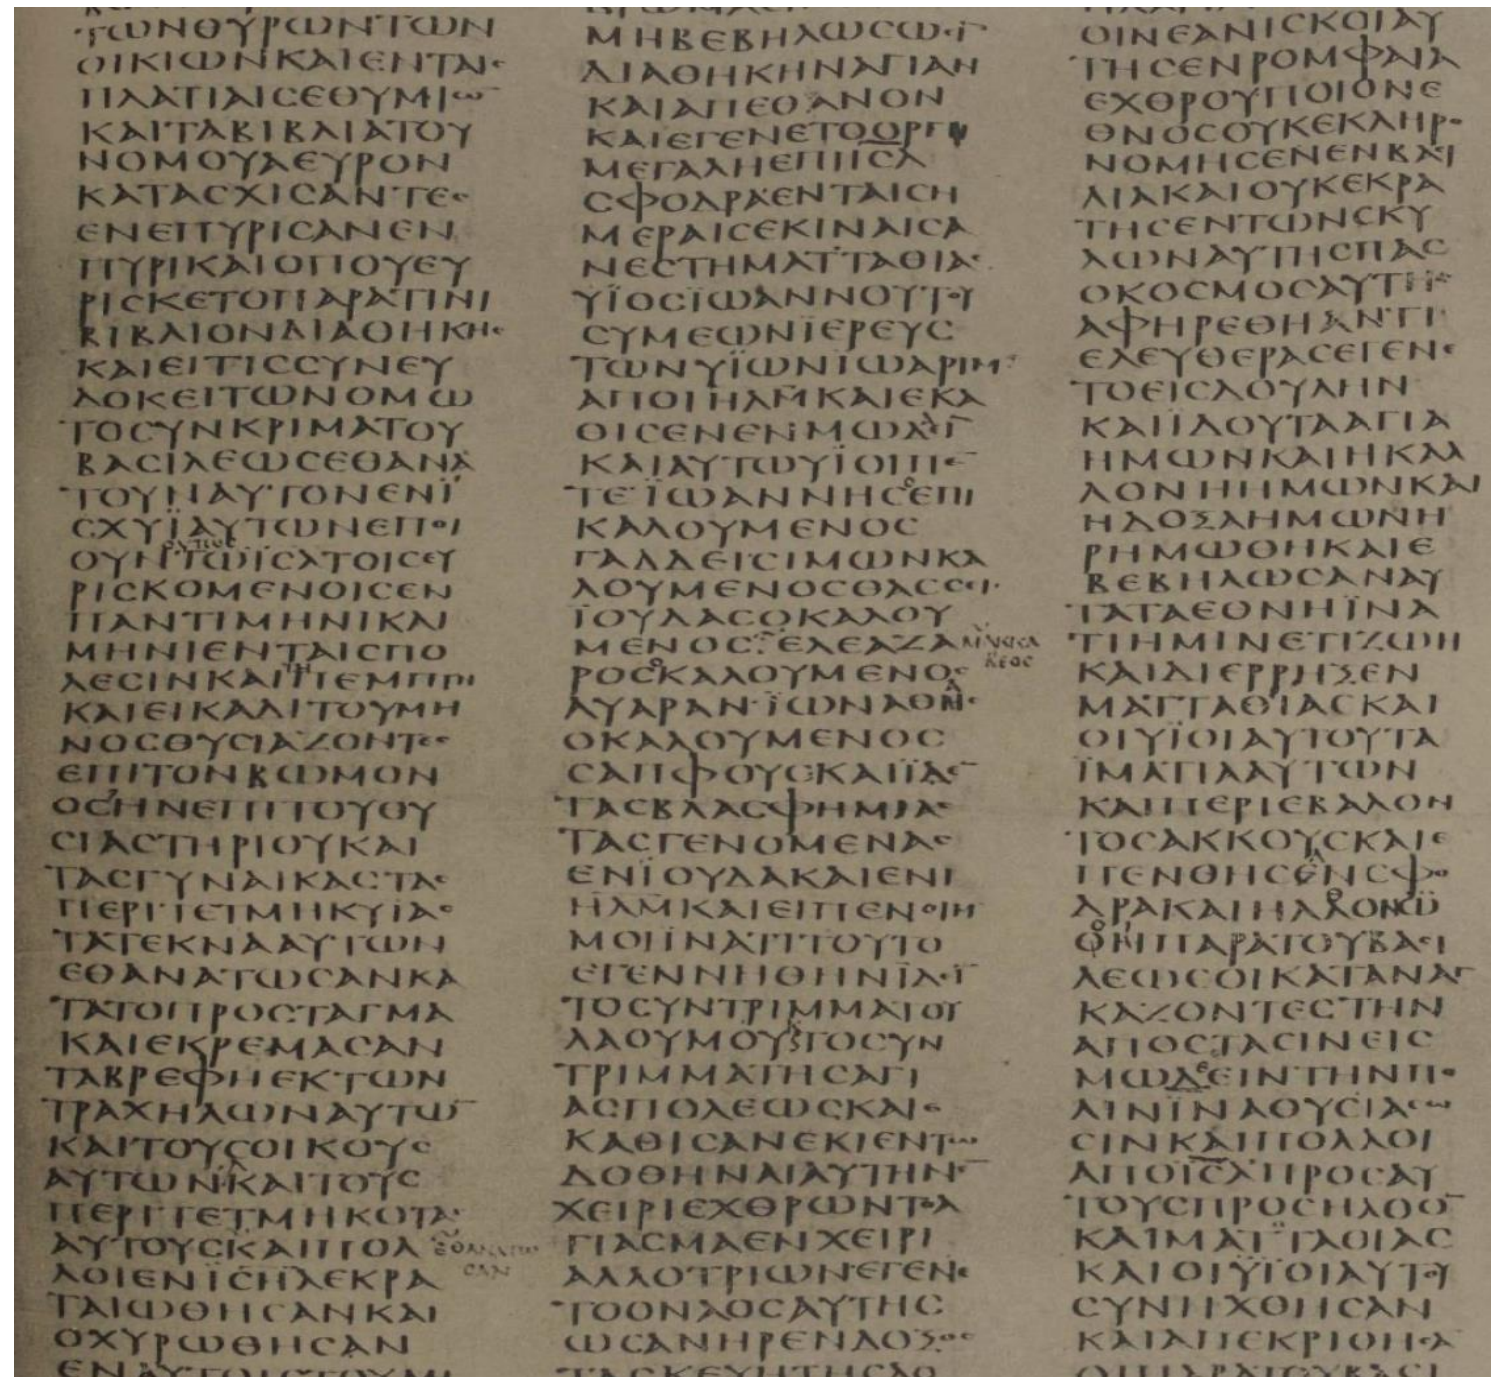 ΤΩΝΘΥΡΩΝΤΩΝ
ΟΙΚΙΩΝΚΑΙΕΝΤΑΙϹ
ΠΛΑΤΙΑΙϹΕΘΥΜΙΩ̅
ΚΑΙΤΑΒΙΒΛΙΑΤΟΥ
ΝΟΜΟΥΑΕΥΡΟΝ
ΚΑΤΑϹΧΙϹΑΝΤΕϹ
ΕΝΕΠΥΡΙϹΑΝΕΝ
ΠΥΡΙΚΑΙΟΠΟΥΕΥ
ΡΙϹΚΕΤΟΠΑΡΑΤΙΝΙ
ΒΙΒΛΙΟΝΔΙΑΘΗΚΗϹ
ΚΑΙΕΙΤΙϹϹΥΝΕΥ
ΔΟΚΕΙΤΩΝΟΜΩ
ΤΟϹΥΝΚΡΙΜΑΤΟΥ
ΒΑϹΙΛΕΩϹΕΘΑΝΑ
ΤΟΥΝΑΥΤΟΝΕΝΪ
ϹΧΥΪΑΥΤΩΝΕΠΟΙ
ΟΥΝΤΩΙϹΑΤΟΙϹΕΥ
ΡΙϹΚΟΜΕΝΟΙϹΕΝ
ΠΑΝΤΙΜΗΝΙΚΑΙ
ΜΗΝΙΕΝΤΑΙϹΠΟ
ΛΕϹΙΝΚΑΙΤΗΠΕΜΠΤΗ
ΚΑΙΕΙΚΑΔΙΤΟΥΜΗ
ΝΟϹΘΥϹΙΑΖΟΝΤΕϹ
ΕΠΙΤΟΝΒΩΜΟΝ
ΟϹΗΝΕΠΙΤΟΥΘΥ
ϹΙΑϹΤΗΡΙΟΥΚΑΙ
ΤΑϹΓΥΝΑΙΚΑϹΤΑϹ
ΠΕΡΙΤΕΤΜΗΚΥΪΑϹ
ΤΑΤΕΚΝΑΑΥΤΩΝ
ΕΘΑΝΑΤΩϹΑΝΚΑ
ΤΑΤΟΠΡΟϹΤΑΓΜΑ
ΚΑΙΕΚΡΕΜΑϹΑΝ
ΤΑΒΡΕΦΗΕΚΤΩΝ
ΤΡΑΧΗΛΩΝΑΥΤΩ̅
ΚΑΙΤΟΥϹΟΙΚΟΥϹ
ΑΥΤΩΝΚΑΙΤΟΥϹ
ΠΕΡΙΤΕΤΜΗΚΟΤΑϹ
ΑΥΤΟΥϹΚΑΙΠΟΛ ΕΘΑΝΑΤΩ
ϹΑΝ
ΛΟΙΕΝΙϹΗΛΕΚΡΑ
ΤΑΙΩΘΗϹΑΝΚΑΙ
ΟΧΥΡΩΘΗϹΑΝ
ΜΗΒΕΒΗΛΩϹΩϹΙ̅
ΔΙΑΘΗΚΗΝΑΓΙΑΝ
ΚΑΙΑΠΕΘΑΝΟΝ
ΚΑΙΕΓΕΝΕΤΟΟΡΓΗ
ΜΕΓΑΛΗΕΠΙΙ̅Ϲ̅Λ̅
ϹΦΟΔΡΑΕΝΤΑΙϹΗ
ΜΕΡΑΙϹΕΚΙΝΑΙϹΑ
ΝΕϹΤΗΜΑΤΤΑΘΙΑϹ
ΥΪΟϹΪΩΑΝΝΟΥΤΟΥ
ϹΥΜΕΩΝΪΕΡΕΥϹ
ΤΩΝΥΪΩΝΪΩΑΡΙΜ
ΑΠΟΙΗΛΜΚΑΙΕΚΑ
ΘΙϹΕΝΕΝΜΩΔΕΪ̅
ΚΑΙΑΥΤΩΥΙΟΙΠΕ̅
ΤΕΪΩΑΝΝΗϹΟΕΠΙ
ΚΑΛΟΥΜΕΝΟϹ
ΓΑΔΔΕΙϹΙΜΩΝΚΑ
ΛΟΥΜΕΝΟϹΘΑϹϹΕΙϹ
ΪΟΥΔΑϹΟΚΑΛΟΥ
ΜΕΝΟϹΕΛΕΑΖΑ ΜΑΚΚΑ
ΒΕΟϹ
ΡΟϹΟΚΑΛΟΥΜΕΝΟϹ
ΑΥΑΡΑΝΪΩΝΑΘΗϹ
ΟΚΑΛΟΥΜΕΝΟϹ
ϹΑΠΦΟΥϹΚΑΙΪΔΕ̅
ΤΑϹΒΛΑϹΦΗΜΙΑϹ
ΤΑϹΓΕΝΟΜΕΝΑϹ
ΕΝΪΟΥΔΑΚΑΙΕΝΙ
ΗΛΜΚΑΙΕΙΠΕΝΟΙΗ
ΜΟΙΪΝΑΤΙΤΟΥΤΟ
ΕΓΕΝΝΗΘΗΝΪΔΕΪ̅
ΤΟϹΥΝΤΡΙΜΜΑΤΟΥ
ΛΑΟΥΜΟΥΚΑΙΤΟϹΥΝ
ΤΡΙΜΜΑΤΗϹΑΓΙ
ΑϹΠΟΛΕΩϹΚΑΙΕ
ΚΑΘΙϹΑΝΕΚΙΕΝΤΩ
ΔΟΘΗΝΑΙΑΥΤΗΝΕ̅
ΧΕΙΡΙΕΧΘΡΩΝΤΟΑ
ΓΙΑϹΜΑΕΝΧΕΙΡΙ
ΑΛΛΟΤΡΙΩΝΕΓΕΝΕ
ΤΟΟΝΑΟϹΑΥΤΗϹ
ΩϹΑΝΗΡΕΝΔΟΞΟϹ
ΟΙΝΕΑΝΙϹΚΟΙΑΥ
ΤΗϹΕΝΡΟΜΦΑΙΑ
ΕΧΘΡΟΥΠΟΙΟΝΕ
ΘΝΟϹΟΥΚΕΚΛΗΡΟ
ΝΟΜΗϹΕΝΕΝΒΑϹΙ
ΛΙΑΚΑΙΟΥΚΕΚΡΑ
ΤΗϹΕΝΤΩΝϹΚΥ
ΛΩΝΑΥΤΗϹΠΑϹ
ΟΚΟϹΜΟϹΑΥΤΗϹ
ΑΦΗΡΕΘΗΑΝΤΙ
ΕΛΕΥΘΕΡΑϹΕΓΕΝΕ
ΤΟΕΙϹΔΟΥΛΗΝ
ΚΑΙΪΔΟΥΤΑΑΓΙΑ
ΗΜΩΝΚΑΙΗΚΑΛ
ΛΟΝΗΗΜΩΝΚΑΙ
ΗΔΟΞΑΗΜΩΝΗ
ΡΗΜΩΘΗΚΑΙΕ
ΒΕΒΗΛΩϹΑΝΑΥ
ΤΑΤΑΕΘΝΗΪΝΑ
ΤΙΗΜΙΝΕΤΙΖΩΗ
ΚΑΙΔΙΕΡΡΗΞΕΝ
ΜΑΤΤΑΘΙΑϹΚΑΙ
ΟΙΥΪΟΙΑΥΤΟΥΤΑ
ΪΜΑΤΙΑΑΥΤΩΝ
ΚΑΙΠΕΡΙΕΒΑΛΟΝ
ΤΟϹΑΚΚΟΥϹΚΑΙΕ
ΠΕΝΘΗϹΕΝϹΦΟ
ΔΡΑΚΑΙΗΛΘΟΝ
ΟΙΠΑΡΑΤΟΥΒΑϹΙ
ΛΕΩϹΟΙΚΑΤΑΝΑΓ
ΚΑΖΟΝΤΕϹΤΗΝ
ΑΠΟϹΤΑϹΙΝΕΙϹ
ΜΩΔΕΕΙΝΤΗΝΠΟ
ΛΙΝΪΝΑΘΥϹΙΑϹΩ
ϹΙΝΚΑΙΠΟΛΛΟΙ
ΑΠΟΙ̅Ϲ̅Λ̅ΠΡΟϹΑΥ
ΤΟΥϹΠΡΟϹΗΛΘΟ̅
ΚΑΙΜΑΤΤΑΘΙΑϹ
ΚΑΙΟΙΫΪΟΙΑΥΤΟΥ
ϹΥΝΗΧΘΗϹΑΝ
ΚΑΙΑΠΕΚΡΙΘΗϹΑ